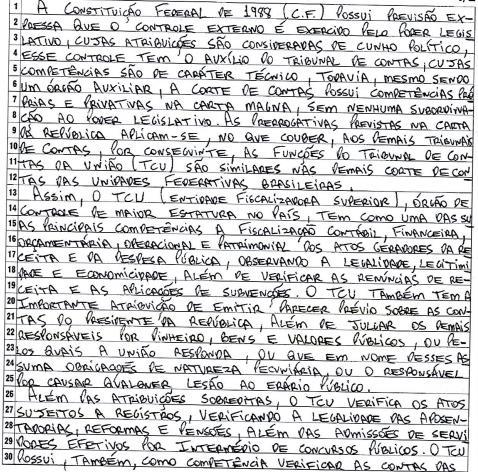 1 A CONSTITUIÇÃO FEDERAL DE 1988 (C.F.) POSSUI PREVISÃO EX-
2 PRESSA QUE O CONTROLE EXTERNO É EXERCIDO PELO PODER LEGIS
3 LATIVO, CUJAS ATRIBUIÇÕES SÃO CONSIDERADAS DE CUNHO POLÍTICO,
4 ESSE CONTROLE TEM O AUXÍLIO DO TRIBUNAL DE CONTAS, CUJAS
5 COMPETÊNCIAS SÃO DE CARÁTER TÉCNICO, TODAVIA, MESMO SENDO
6 UM ÓRGÃO AUXILIAR, A CORTE DE CONTAS POSSUI COMPETÊNCIAS PRÓ
7 PRIAS E PRIVATIVAS NA CARTA MAGNA, SEM NENHUMA SUBORDINA-
8 ÇÃO AO PODER LEGISLATIVO. AS PRERROGATIVAS PREVISTAS NA CARTA
9 DA REPÚBLICA APLICAM-SE, NO QUE COUBER, AOS DEMAIS TRIBUNAIS
10 DE CONTAS, POR CONSEGUINTE, AS FUNÇÕES DO TRIBUNAL DE CON-
11 TAS DA UNIÃO (TCU) SÃO SIMILARES NAS DEMAIS CORTE DE CON-
12 TAS DAS UNIDADES FEDERATIVAS BRASILEIRAS.
13 ASSIM, O TCU (ENTIDADE FISCALIZADORA SUPERIOR), ÓRGÃO DE
14 CONTROLE DE MAIOR ESTATURA NO PAÍS, TEM COMO UMA DAS SU
15 AS PRINCIPAIS COMPETÊNCIAS A FISCALIZAÇÃO CONTÁBIL, FINANCEIRA,
16 ORÇAMENTÁRIA, OPERACIONAL E PATRIMONIAL DOS ATOS GERADORES DA RE
17 CEITA E DA DESPESA PÚBLICA, OBSERVANDO A LEGALIDADE, LEGITIMI
18 DADE E ECONOMICIDADE, ALÉM DE VERIFICAR AS RENÚNCIAS DE RE-
19 CEITA E AS APLICAÇÕES DE SUBVENÇÕES. O TCU TAMBÉM TEM A
20 IMPORTANTE ATRIBUIÇÃO DE EMITIR PARECER PRÉVIO SOBRE AS CON-
21 TAS DO PRESIDENTE DA REPÚBLICA, ALÉM DE JULGAR OS DEMAIS
22 RESPONSÁVEIS POR DINHEIRO, BENS E VALORES PÚBLICOS, OU PE-
23 LOS QUAIS A UNIÃO RESPONDA, OU QUE EM NOME DESSES AS
24 SUMA OBRIGAÇÕES DE NATUREZA PECUNIÁRIA, OU O RESPONSÁVEL
25 POR CAUSAR QUALQUER LESÃO AO ERÁRIO PÚBLICO.
26 ALÉM DAS ATRIBUIÇÕES SOBREDITAS, O TCU VERIFICA OS ATOS
27 SUJEITOS A REGISTROS, VERIFICANDO A LEGALIDADE DAS APOSEN-
28 TADORIAS, REFORMAS E PENSÕES, ALÉM DAS ADMISSÕES DE SERVI
29 DORES EFETIVOS POR INTERMÉDIO DE CONCURSOS PÚBLICOS. O TCU
30 POSSUI, TAMBÉM, COMO COMPETÊNCIA VERIFICAR AS CONTAS DAS